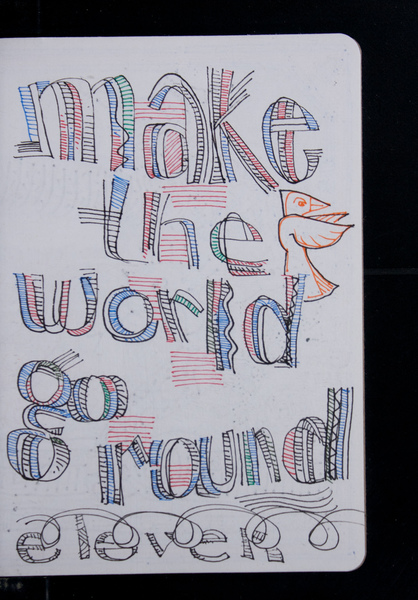 make
the
world
go
round
eleveR